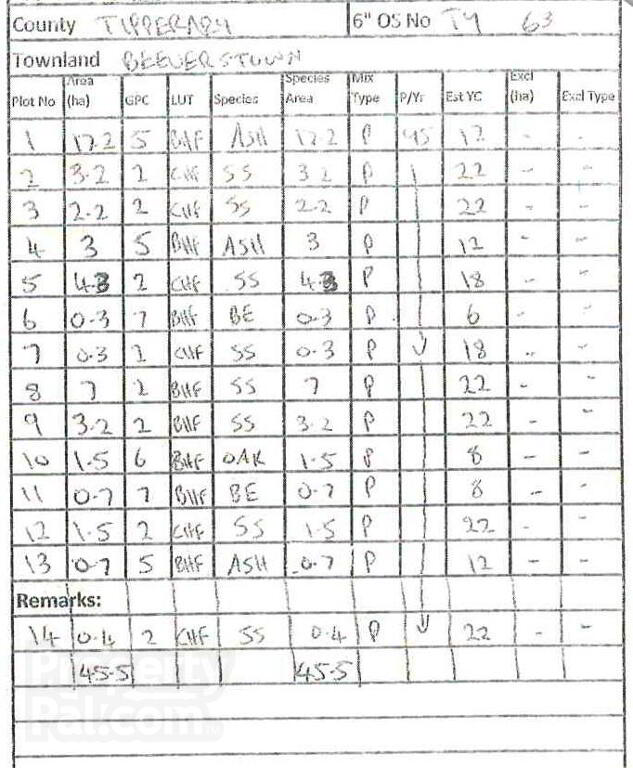 County TIPPERARY 6" OS No TY 63
Townland BEEVERSTOWN
Plot No Area (ha) GPC LUT Species Species Area Mix Type P/Yr Est YC Excl (ha) Excl Type
1 17.2 5 BHF ASH 17.2 P 95 12 - -
2 3.2 2 CHF SS 3.2 P 22 - -
3 2.2 2 CHF SS 2.2 P 22 - -
4 3 5 BHF ASH 3 P 12 - -
5 4.3 2 CHF SS 4.3 P 18 - -
6 0.3 7 BHF BE 0.3 P 6 - -
7 0.3 2 CHF SS 0.3 P ↓ 18 - -
8 7 2 BHF SS 7 P 22 - -
9 3.2 2 BHF SS 3.2 P 22 - -
10 1.5 6 BHF OAK 1.5 P 8 - -
11 0.7 7 BHF BE 0.7 P 8 - -
12 1.5 2 CHF SS 1.5 P 22 - -
13 0.7 5 BHF ASH 0.7 P 12 - -
Remarks:
14 0.4 2 CHF SS 0.4 P ↓ 22 - -
45.5 45.5
Property
Pal.com